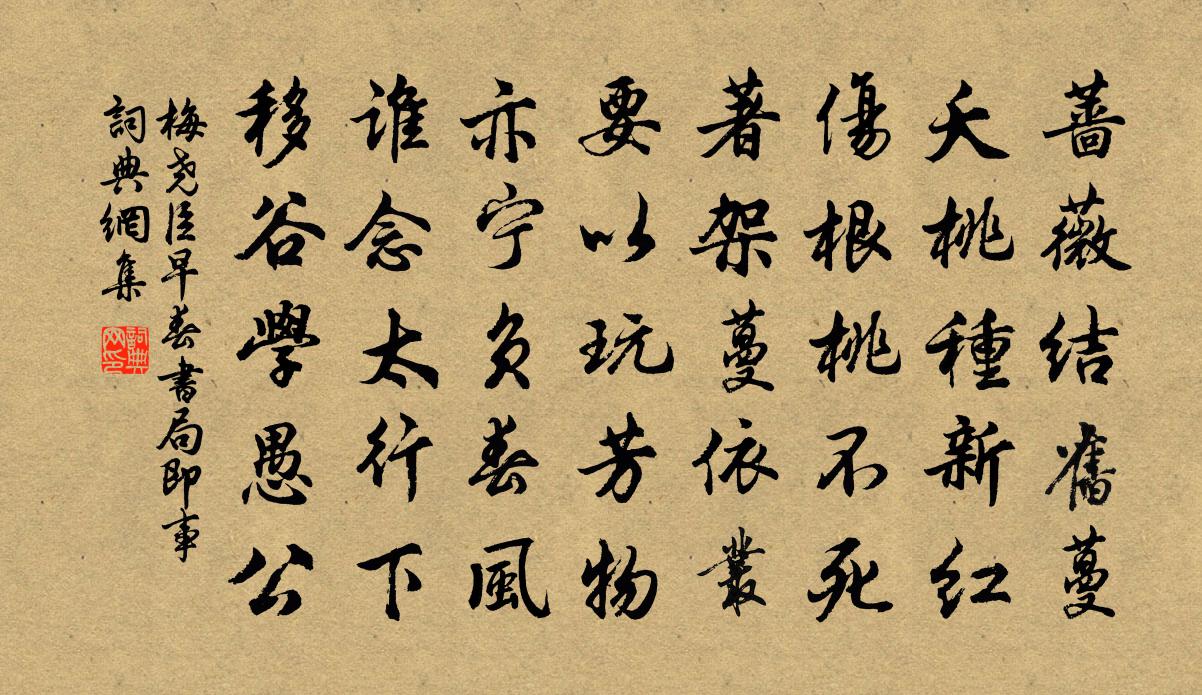 蔷薇结舊蔓
夭桃種新红
傷根桃不死
著架蔓依叢
要以玩芳物
亦宁负春風
谁念太行下
移谷學愚公
梅尧臣早春書局即事
詞典網集
詞典网印